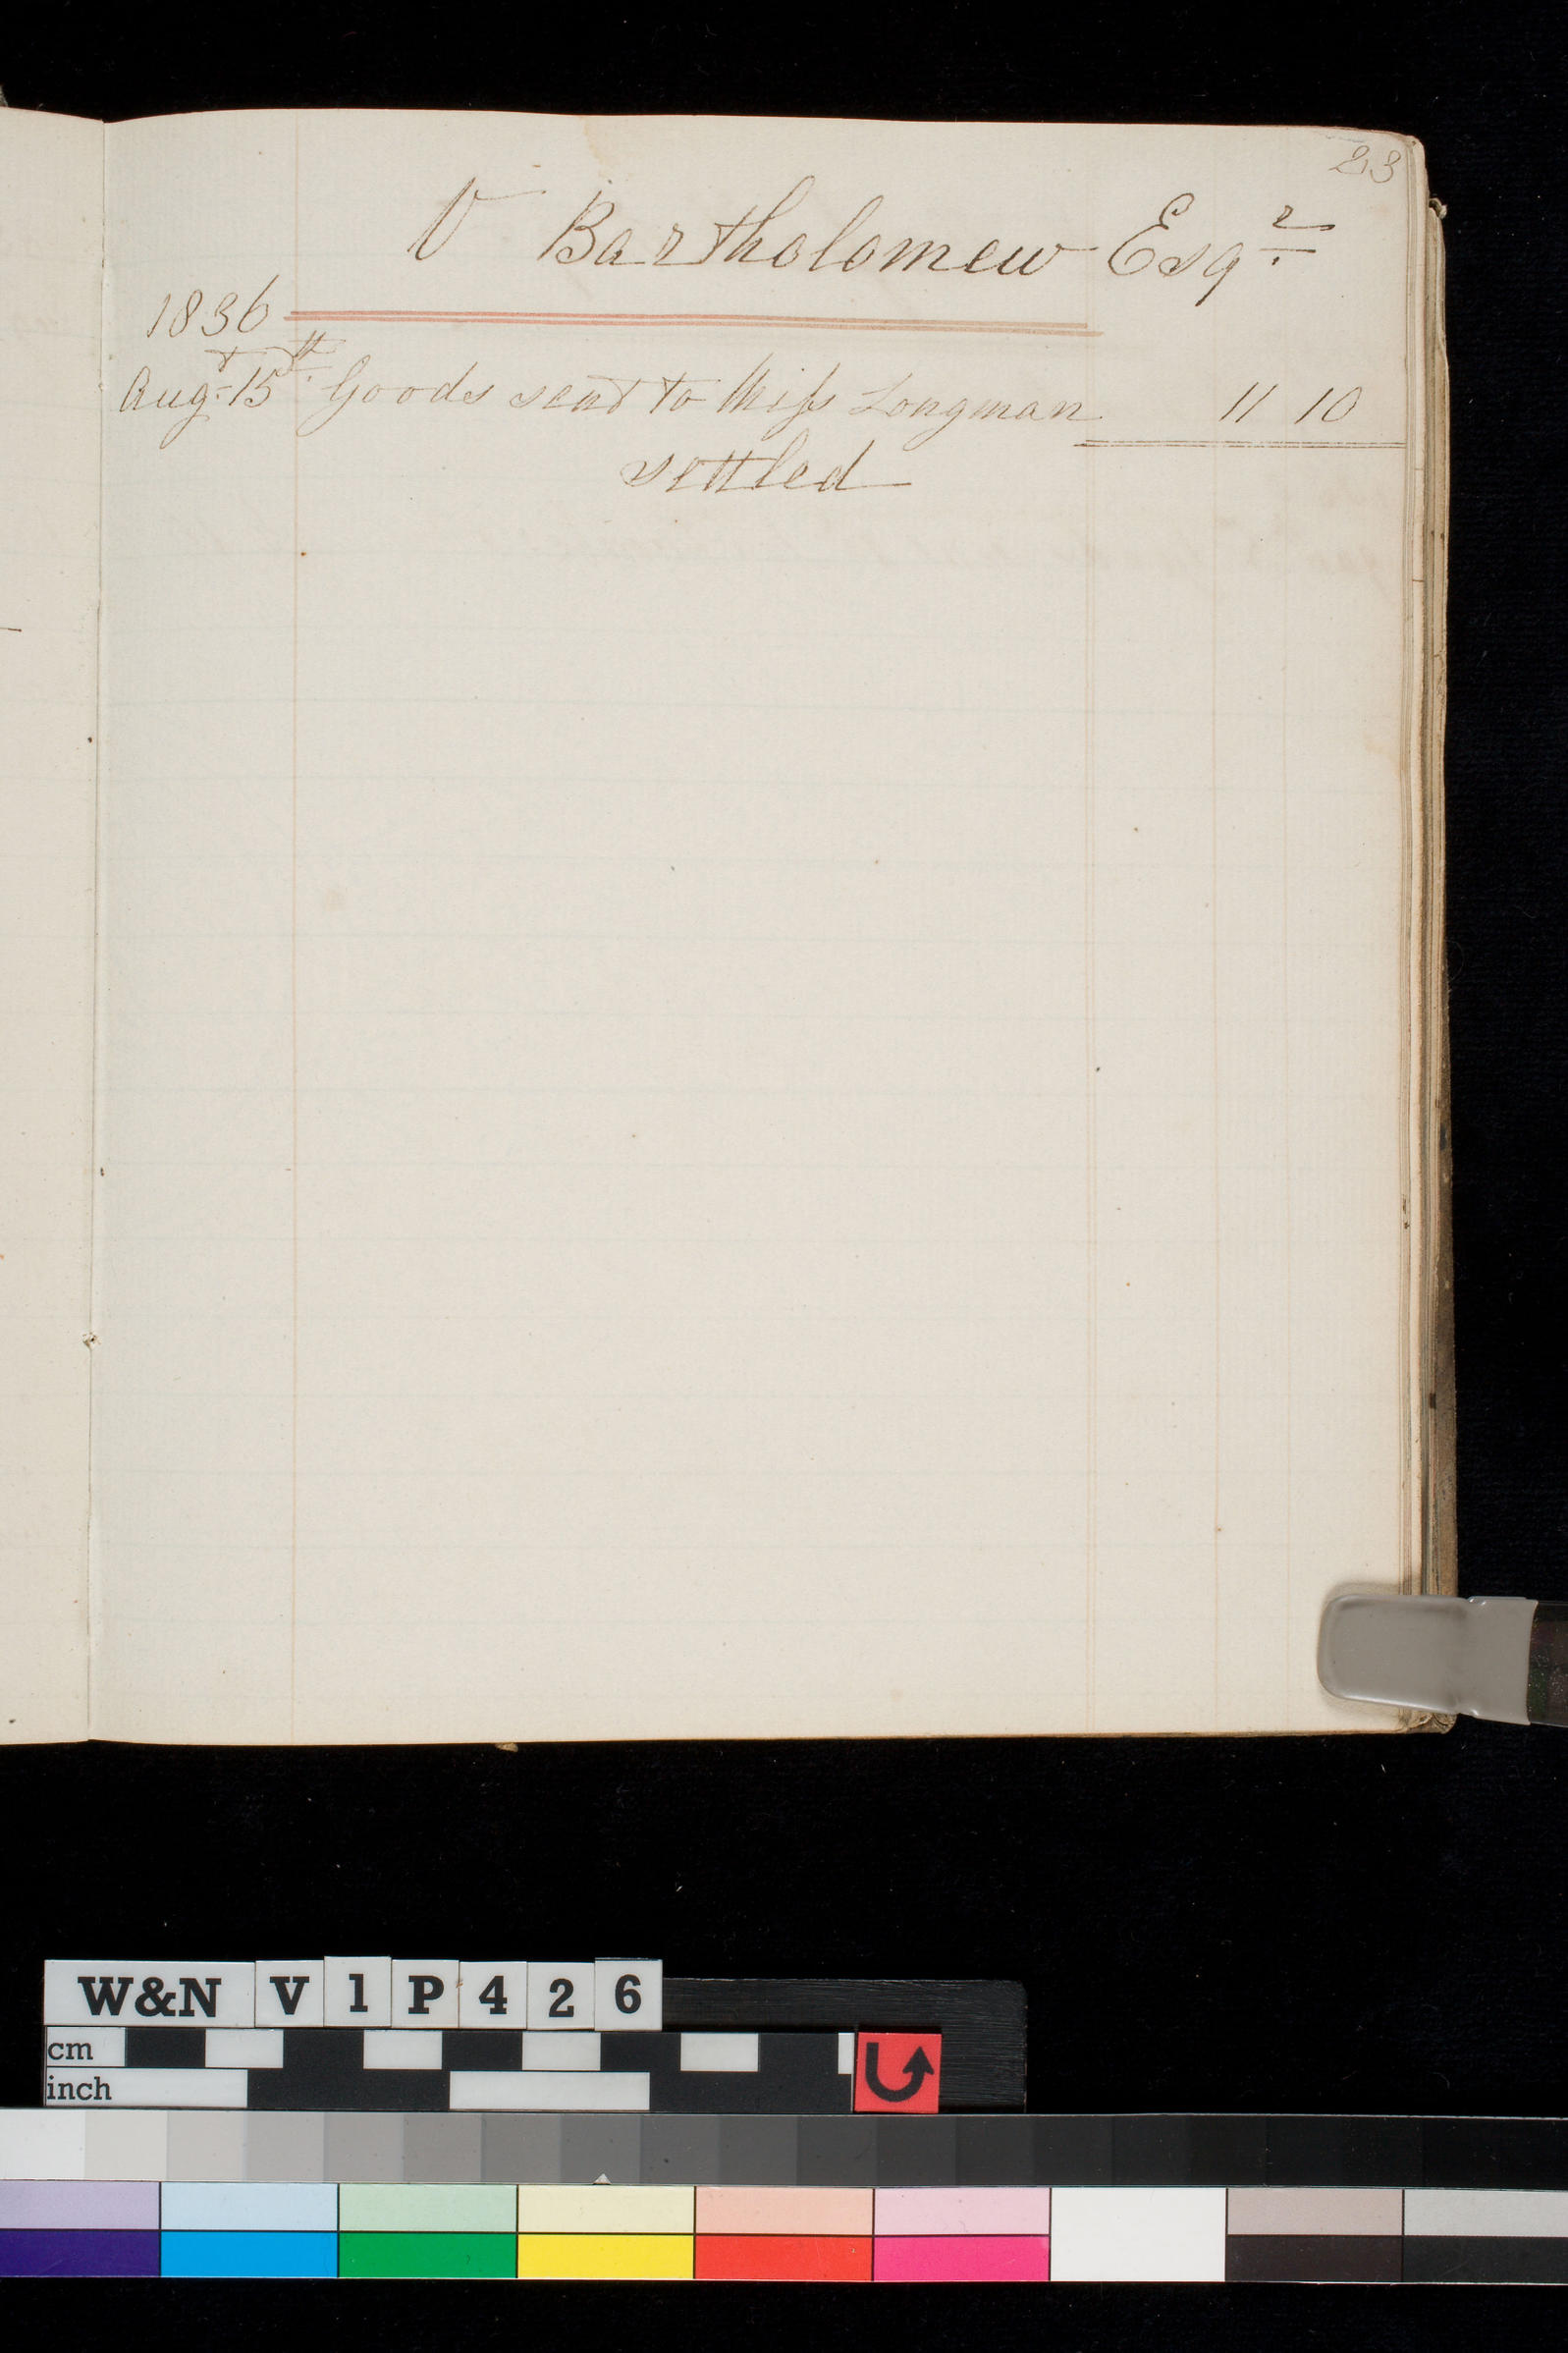 23
V Bartholomew Esqr.
1836
Augt. 15th. Goods sent to Miſs Longman 11 10
settled
W&N V1P426
cm
inch